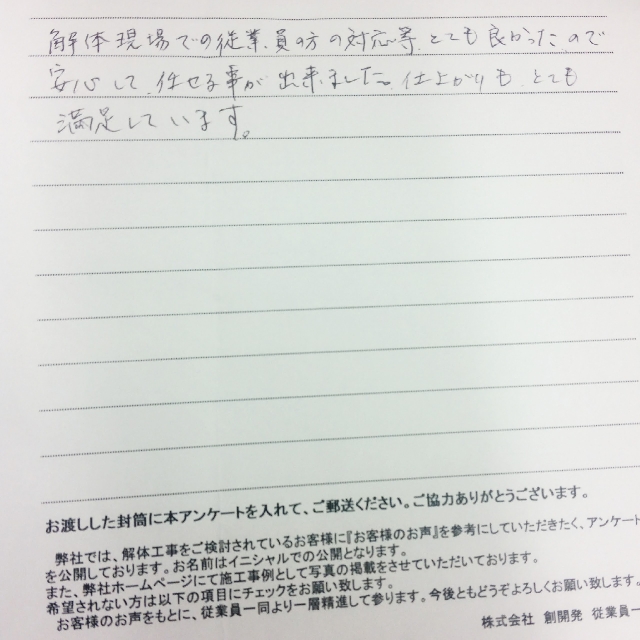 解体現場での従業員の方の対応等、とても良かったので
安心して、任せる事が出来ました。仕上がりも、とても
満足しています。
お渡しした封筒に本アンケートを入れて、ご郵送ください。ご協力ありがとうございます。
弊社では、解体工事をご検討されているお客様に『お客様のお声』を参考にしていただきたく、アンケート
を公開しております。お名前はイニシャルでの公開となります。
また、弊社ホームページにて施工事例として写真の掲載をさせていただいております。
希望されない方は以下の項目にチェックをお願い致します。
お客様のお声をもとに、従業員一同より一層精進して参ります。今後ともどうぞよろしくお願い致します。
株式会社 創開発 従業員一